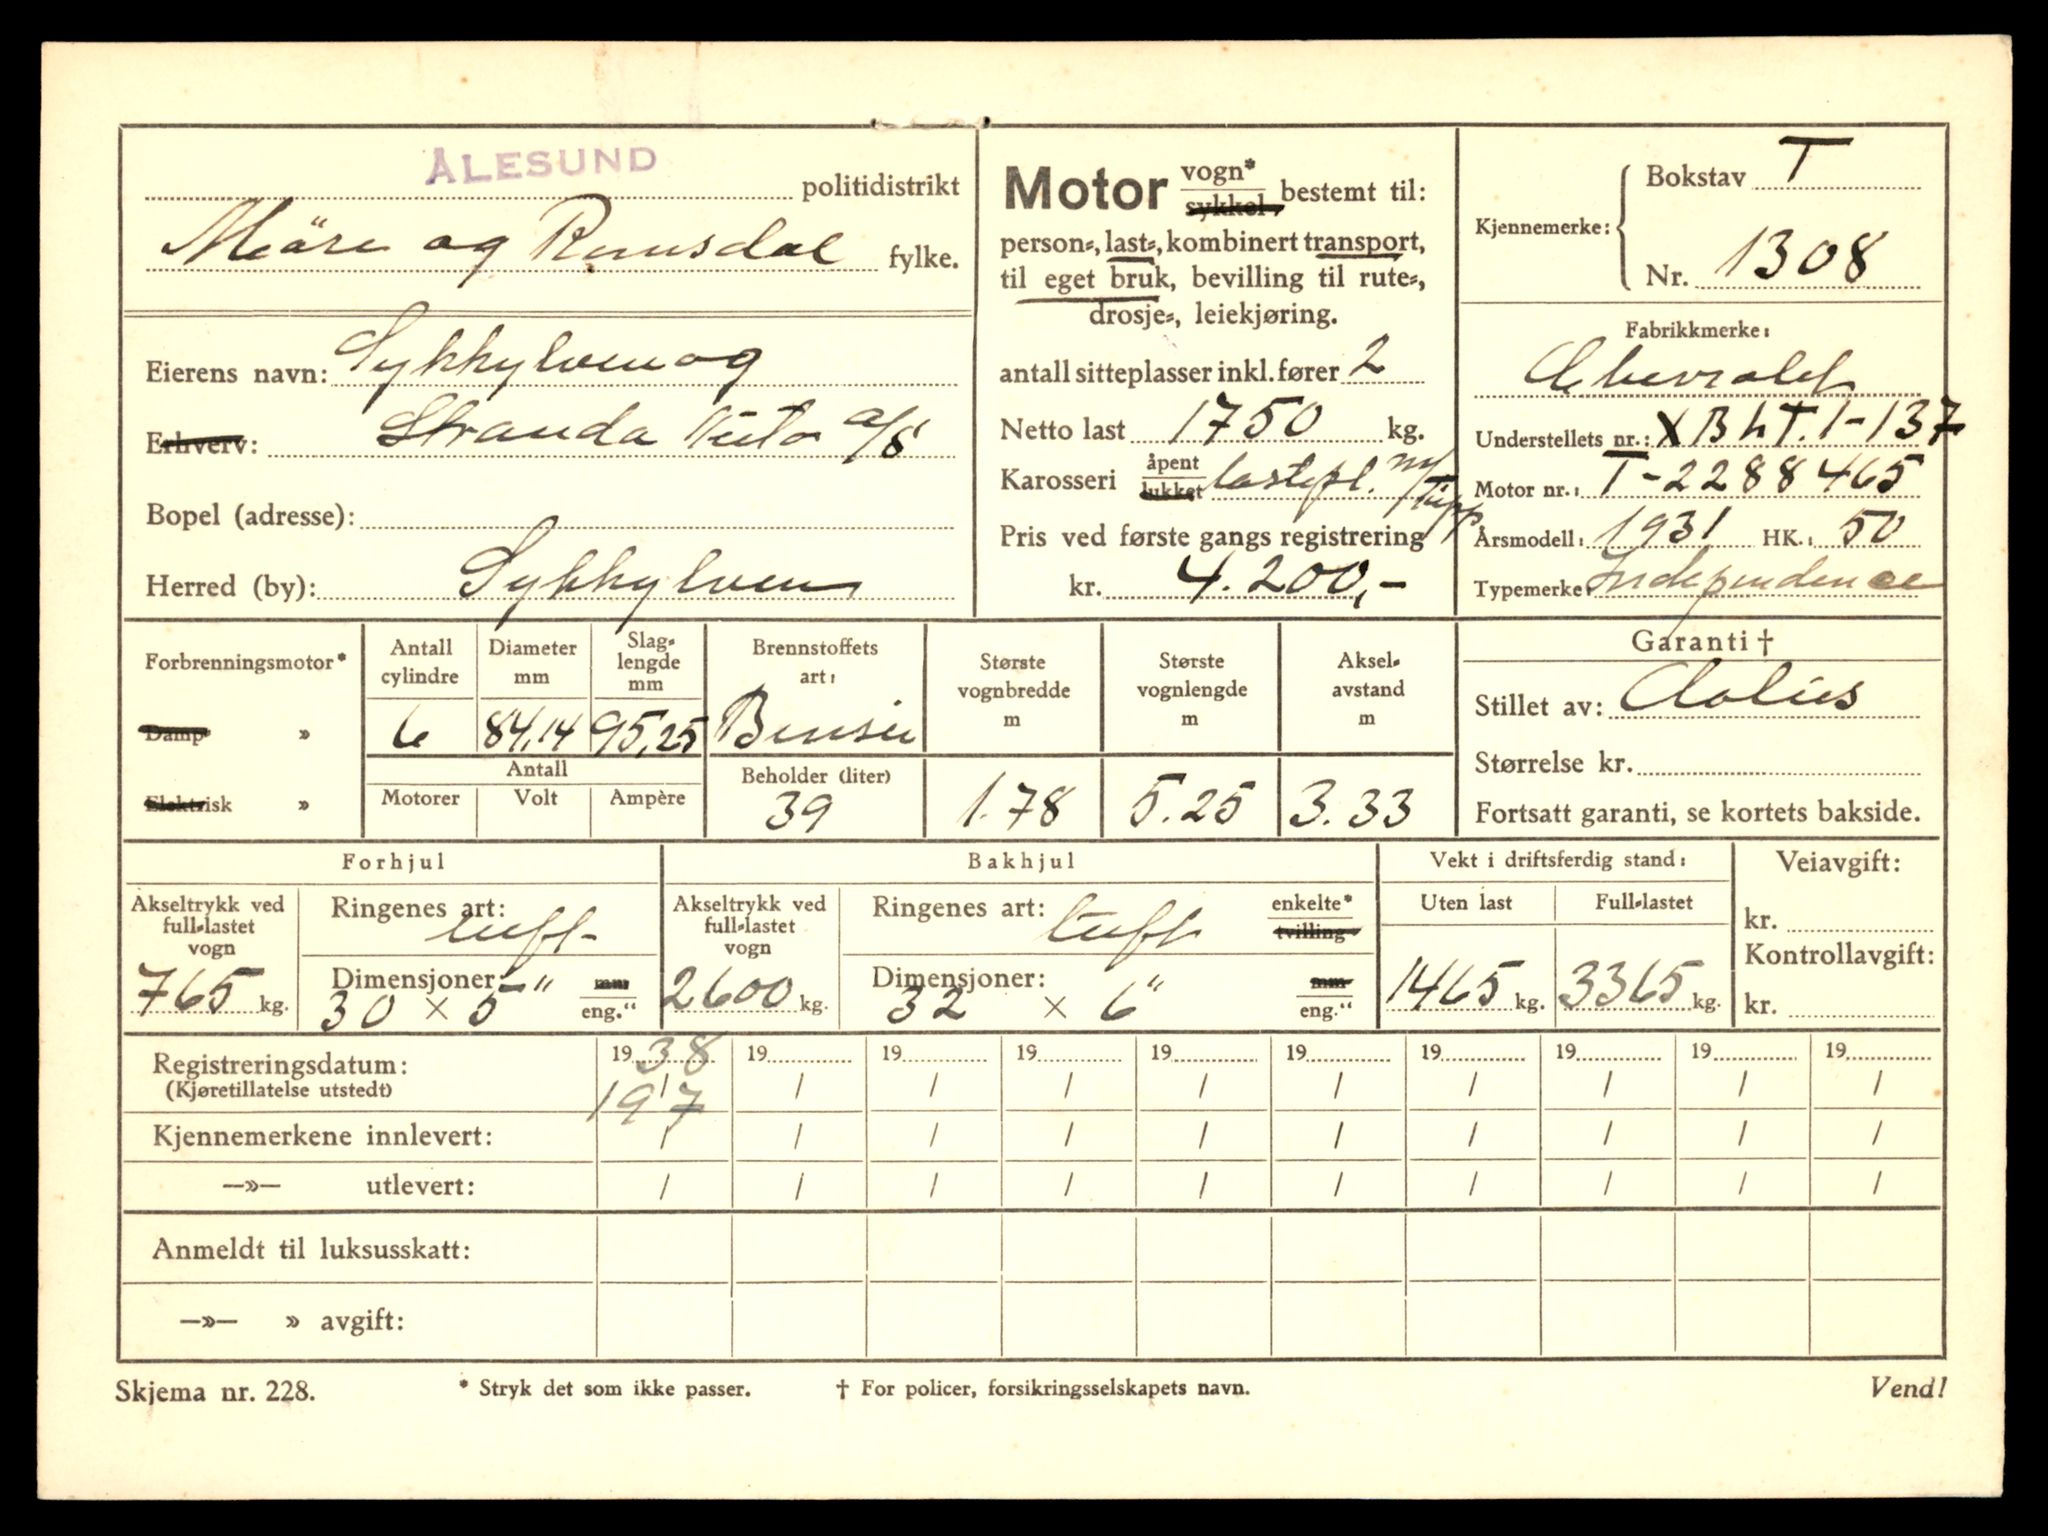 ÅLESUND politidistrikt
Möre og Romsdal fylke.
Eierens navn: Sykkylven og
Erhverv: Stranda Auto A/S
Bopel (adresse):
Herred (by): Sykkylven
Motor vogn* sykkel. bestemt til:
person-, last-, kombinert transport,
til eget bruk, bevilling til rute-,
drosje-, leiekjøring.
antall sitteplasser inkl. fører 2
Netto last 1750 kg.
Karosseri åpent lukket lastepl. m/Tipp
Pris ved første gangs registrering
kr. 4.200,-
Kjennemerke: Bokstav T
Nr. 1308
Fabrikkmerke:
Chevrolet
Understellets nr.: XBLT.1-137
Motor nr.: T-2288465
Årsmodell: 1931 HK.: 50
Typemerke: Independence
Forbrenningsmotor*
Damp- »
Elektrisk »
Antall cylindre
6
Diameter mm
84,14
Slaglengde mm
95,25
Antall
Motorer Volt Ampère
Brennstoffets art:
Bensin
Beholder (liter)
39
Største vognbredde m
1.78
Største vognlengde m
5.25
Akselavstand m
3.33
Garanti †
Stillet av: Aolius
Størrelse kr.
Fortsatt garanti, se kortets bakside.
Forhjul
Akseltrykk ved full-lastet vogn
765 kg.
Ringenes art: luft
Dimensjoner: mm
30 x 5" eng.“
Bakhjul
Akseltrykk ved full-lastet vogn
2600 kg.
Ringenes art: luft enkelte* tvilling-
Dimensjoner: mm
32 x 6" eng.“
Vekt i driftsferdig stand:
Uten last Full-lastet
1465 kg. 3365 kg.
Veiavgift:
kr.
Kontrollavgift:
kr.
Registreringsdatum: 1938 19 19 19 19 19 19 19 19 19
(Kjøretillatelse utstedt) 19/7 / / / / / / / / /
Kjennemerkene innlevert: / / / / / / / / / /
—»— utlevert: / / / / / / / / / /
Anmeldt til luksusskatt:
—»— » avgift:
Skjema nr. 228. * Stryk det som ikke passer. † For policer, forsikringsselskapets navn. Vend!